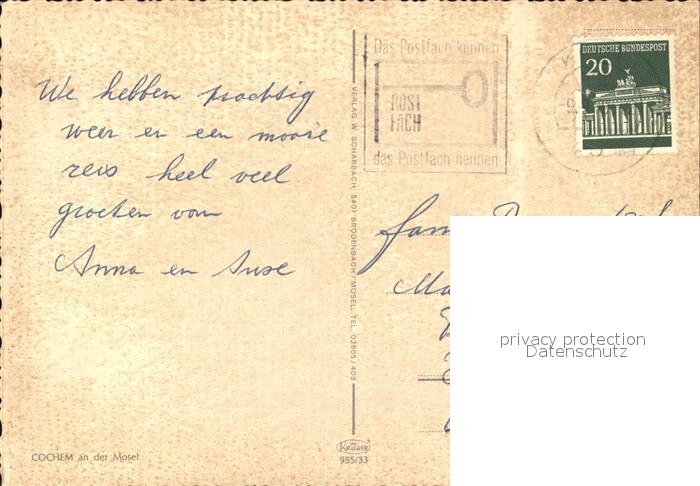 We hebben prachtig
weer en een mooie
reis heel veel
groeten van
Anna en
COCHEM an der Mosel
VERLAG W. SCHARBACH, 5401 BRODENBACH / MOSEL, TEL. 02605/403
KRÜGER
955/33
Das Postfach kennen
POST
FACH
das Postfach nennen
DEUTSCHE BUNDESPOST
20
Fam
privacy protection
Datenschutz